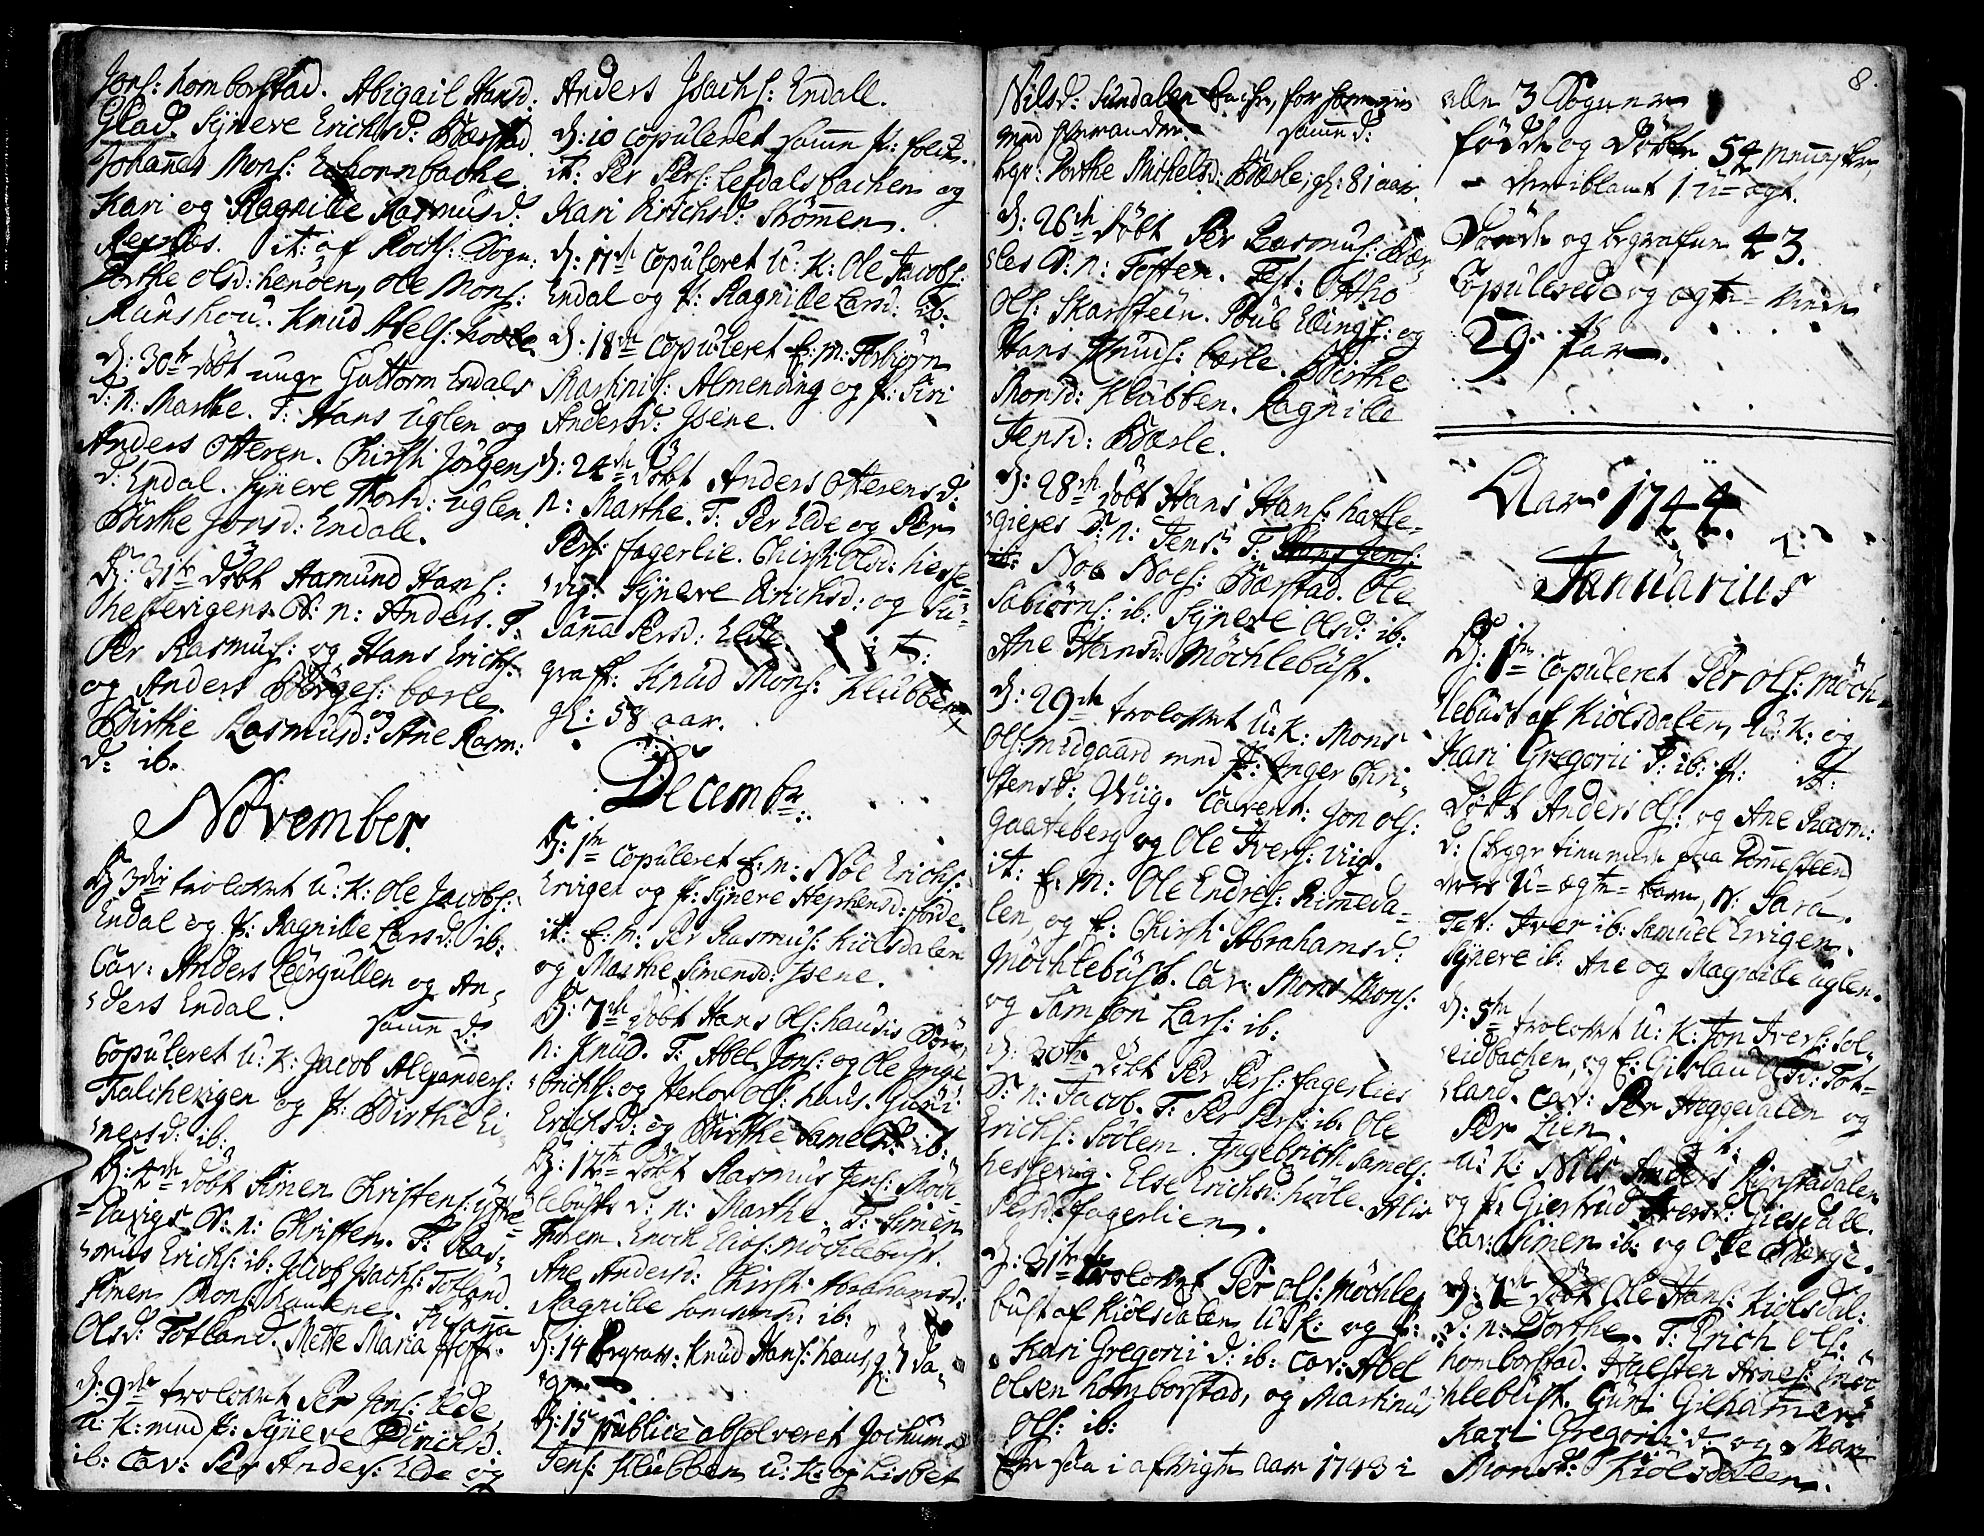 Jons: homborstad. Abigail Hansd:
Glad. Synneve Erichsd: Bærstad.
Johannes Mons: Echornbache
Kari og Ragnille Rasmusd:
Refnes. it: af Rods: Sogn:
Dorthe Olsd: henøen, Ole Mons:
Munshou. Knud Abels: hoole.
D: 30te døbt unge Guttorm Endals
d: n: Marthe. T: Hans Uglen og
Anders Otteren. Chirsti Jørgens
d: Endal. Synneve Thorsd: Uglen.
Birthe Jonsd: Endall.
D: 31te døbt Aamund Hans:
heffevigens S: n: Anders. T:
Per Rasmus: og Hans Erichs:
og Anders Børges: bærle.
Birthe Rasmusd: og Ane Rasm:
d: ib.
November.
D: 3die trolovet U: K: Ole Jacobs:
Endal og P: Ragnille Larsd: ib:
Cav: Anders Leergullen og An-
ders Endal. Samme d:
Copuleret U: K: Jacob Alexanders:
Falchevigen og P: Birthe Ei-
nersd: ib:
D: 4de døbt Simen Christens:
S: n: Christen. T: Ras-
mus Erichs: ib: Jacob Isachs: Totland
Simen Mons: Susanna
Olsd: Totland. Mette Maria Hoff.
D: 9de trolovet Per Jens: Elde
U: K: med P: Synneve Erichsd:
ib: Cav: Per Anders: Elde og
Anders Isachs: Endall.
D: 10 copuleret Samme P: folch.
it: Per Pers: Lefdalsbachen og
Kari Erichsd: Skømmen.
D: 17de Copuleret U: K: Ole Jacobs:
Endal og P: Ragnille Larsd: ib:
D: 18de Copuleret E: M: Asbiørn
Martinis: Almending og P: Siri
Andersd: Isene.
D: 24de døbt Anders Otterens d:
n: Marthe. T: Per Elde og Per
Pers: fagerlie. Chirsti Olsd: heffe-
vig. Synneve Erichsd: og Su-
sanna Persd: Elde it:
graff: Knud Mons: Klubben
gl: 58 aar.
Decembr:
D: 1te Copuleret E: M: Noe Erichs:
Ervigen og P: Synneve Stephensd: förde.
it: E: M: Per Rasmus: Kiølsdalen
og Marthe Simensd: Isene.
D: 7de døbt Hans Ols: hausis Søn,
n: Knud. T: Abel Jons: og Ole Inge-
brichs: og Herlov Ols: haus. Guri
Erichsd: og Birthe Samelsd: ib:
D: 17te døbt Rasmus Jens: Møch-
lebusts d: n: Marthe. T: Simen
Enoch Elias: Møchlebust.
Ane Andersd: Chirsti Abrahamsd:
Ragnille Samsonsd: ib:
D: 14 begrav: Knud Hans: haus, gl: 7 da-
ge.
D: 15 publice absolveret Jochum
Jens: Klubben U: K: og Lisbet
Nilsd: Sundalen for
med hverandre. Samme d:
begr: Dorthe Michelsd: Bærle, gl: 81 aar.
D: 26de døbt Per Rasmus: Bær-
les S: n: Torsten. Test: Atho
Ols: Skarsteen. Poul Ellings: og
Hans Knuds: bærle. Birthe
Monsd: Klubben. Ragnille
Jensd: Bærle.
D: 28de døbt Hans Hans: hatle-
giejes S: n: Jens. T: Hans Jens:
ib: Noe Noes: Bærstad. Ole
Sabiørns: ib: Synneve Olsd: ib:
Ane Hansd: Møchlebust.
D: 29de trolovet U: K: Mons
Ols: midgaard med P: Inger Chri-
stensd: Wiig. Cavent: Jon Ols:
Gaateberg og Ole Ivers: viig.
it: E: M: Ole Endres: Rimmeda-
len, og E: Chirsti Abrahamsd:
Møchlebust. Cav: Mons Mons:
og Samson Lars: ib:
D: 30te døbt Per Pers: fagerlies
S: n: Jacob. T: Per Pers: ib: Ole
Erichs: Søølem. Ingebricth Samels:
heffevig. Else Erichsd: hoole. Alis
Persd: fagerlien.
D: 31te trolovet Per Ols: Møchle-
bust af Kiølsdalen U: K: og P:
Kari Gregorii d: ib: Cav: Abel
Olsen homborstad, og Martinus
Ols: ib:
Er saa i afvigte Aar 1743 i
8.
alle 3 Sogner
fødde og døbte 54 mennesker,
- deriblant 1 u-ægt.
Døde og begrafne 43.
Copulerede og ægte-viede
29. Par.
Aar 1744.
Januarius
D: 1te Copuleret Per Ols: Møch-
lebust af Kiølsdalen, U: K: og
Kari Gregorii d: ib: P: it:
døbt Anders Ols: og Ane Rasm:
d: (begge tienende paa Tommesteen)
deres U-ægte-barn, n: Sara.
Test: Iver ib: Samuel Ervigen.
Synneve ib: Ane og Magnille uglen.
D: 5te trolovet U: K: Jon Ivers: Sol-
eidbachen, og E: Gislaug Tot-
land. Cav: Per Heggedalen og
Per Lien. it:
U: K: Nils Anders Rimstadalen
og P: Giertrud Iversd: Giesdall.
Cav: Simen ib: og Ole Berge.
D: 7de døbt Ole Hans: Kiølsdal:
d: n: Dorthe. T: Erich Ols:
homborstad. Halsten Arnes: Møc-
hlebust. Guri Gilhamer.
Kari Gregorii d: og Mari
Monsd: Kiølsdalen.